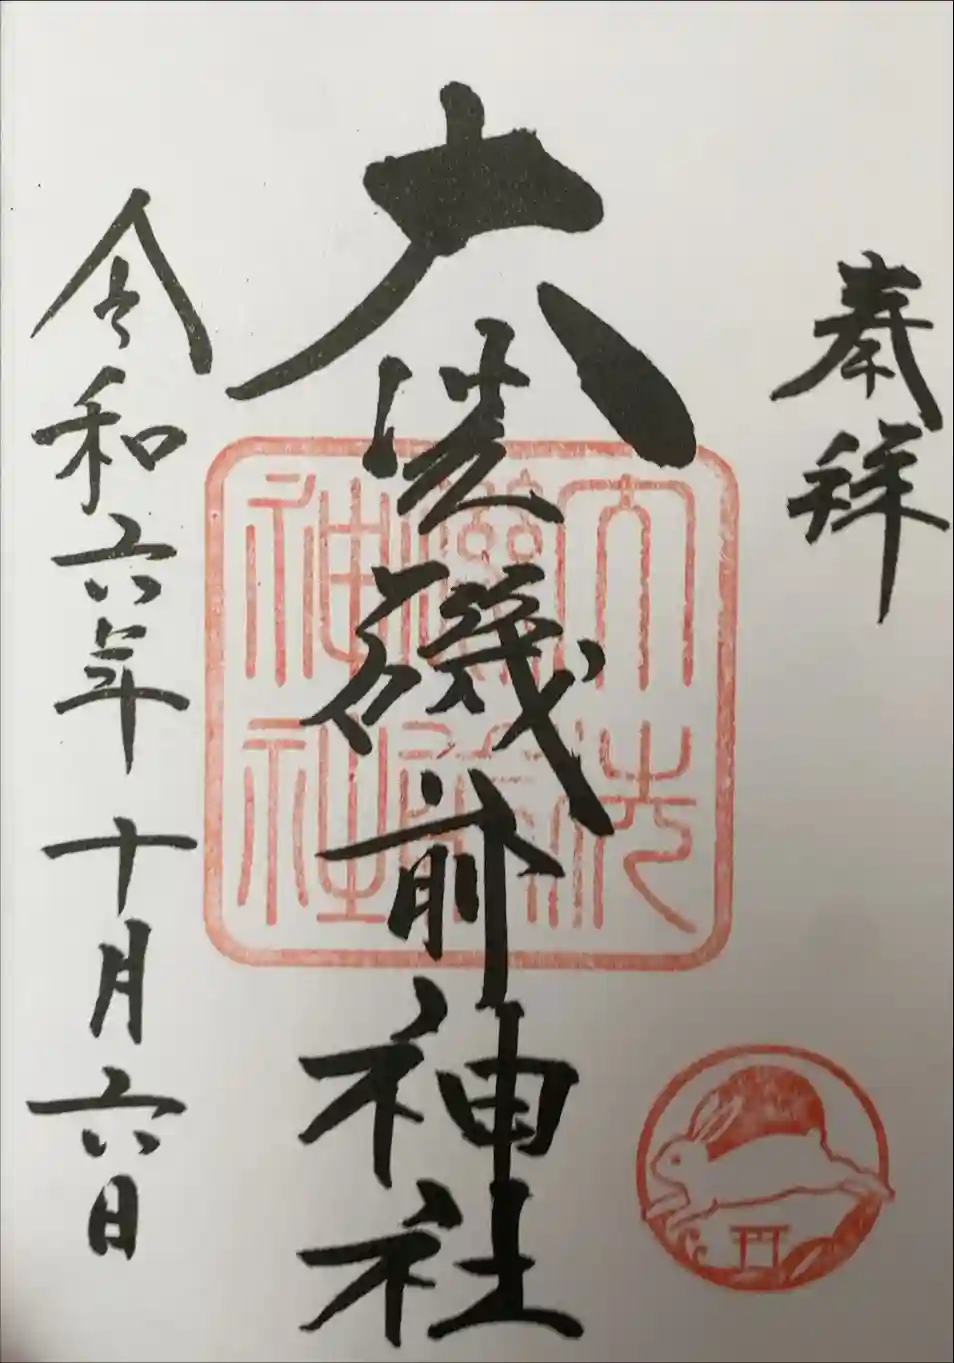 奉拜
大洗磯前神社
大洗磯前神社
令和六年十月六日